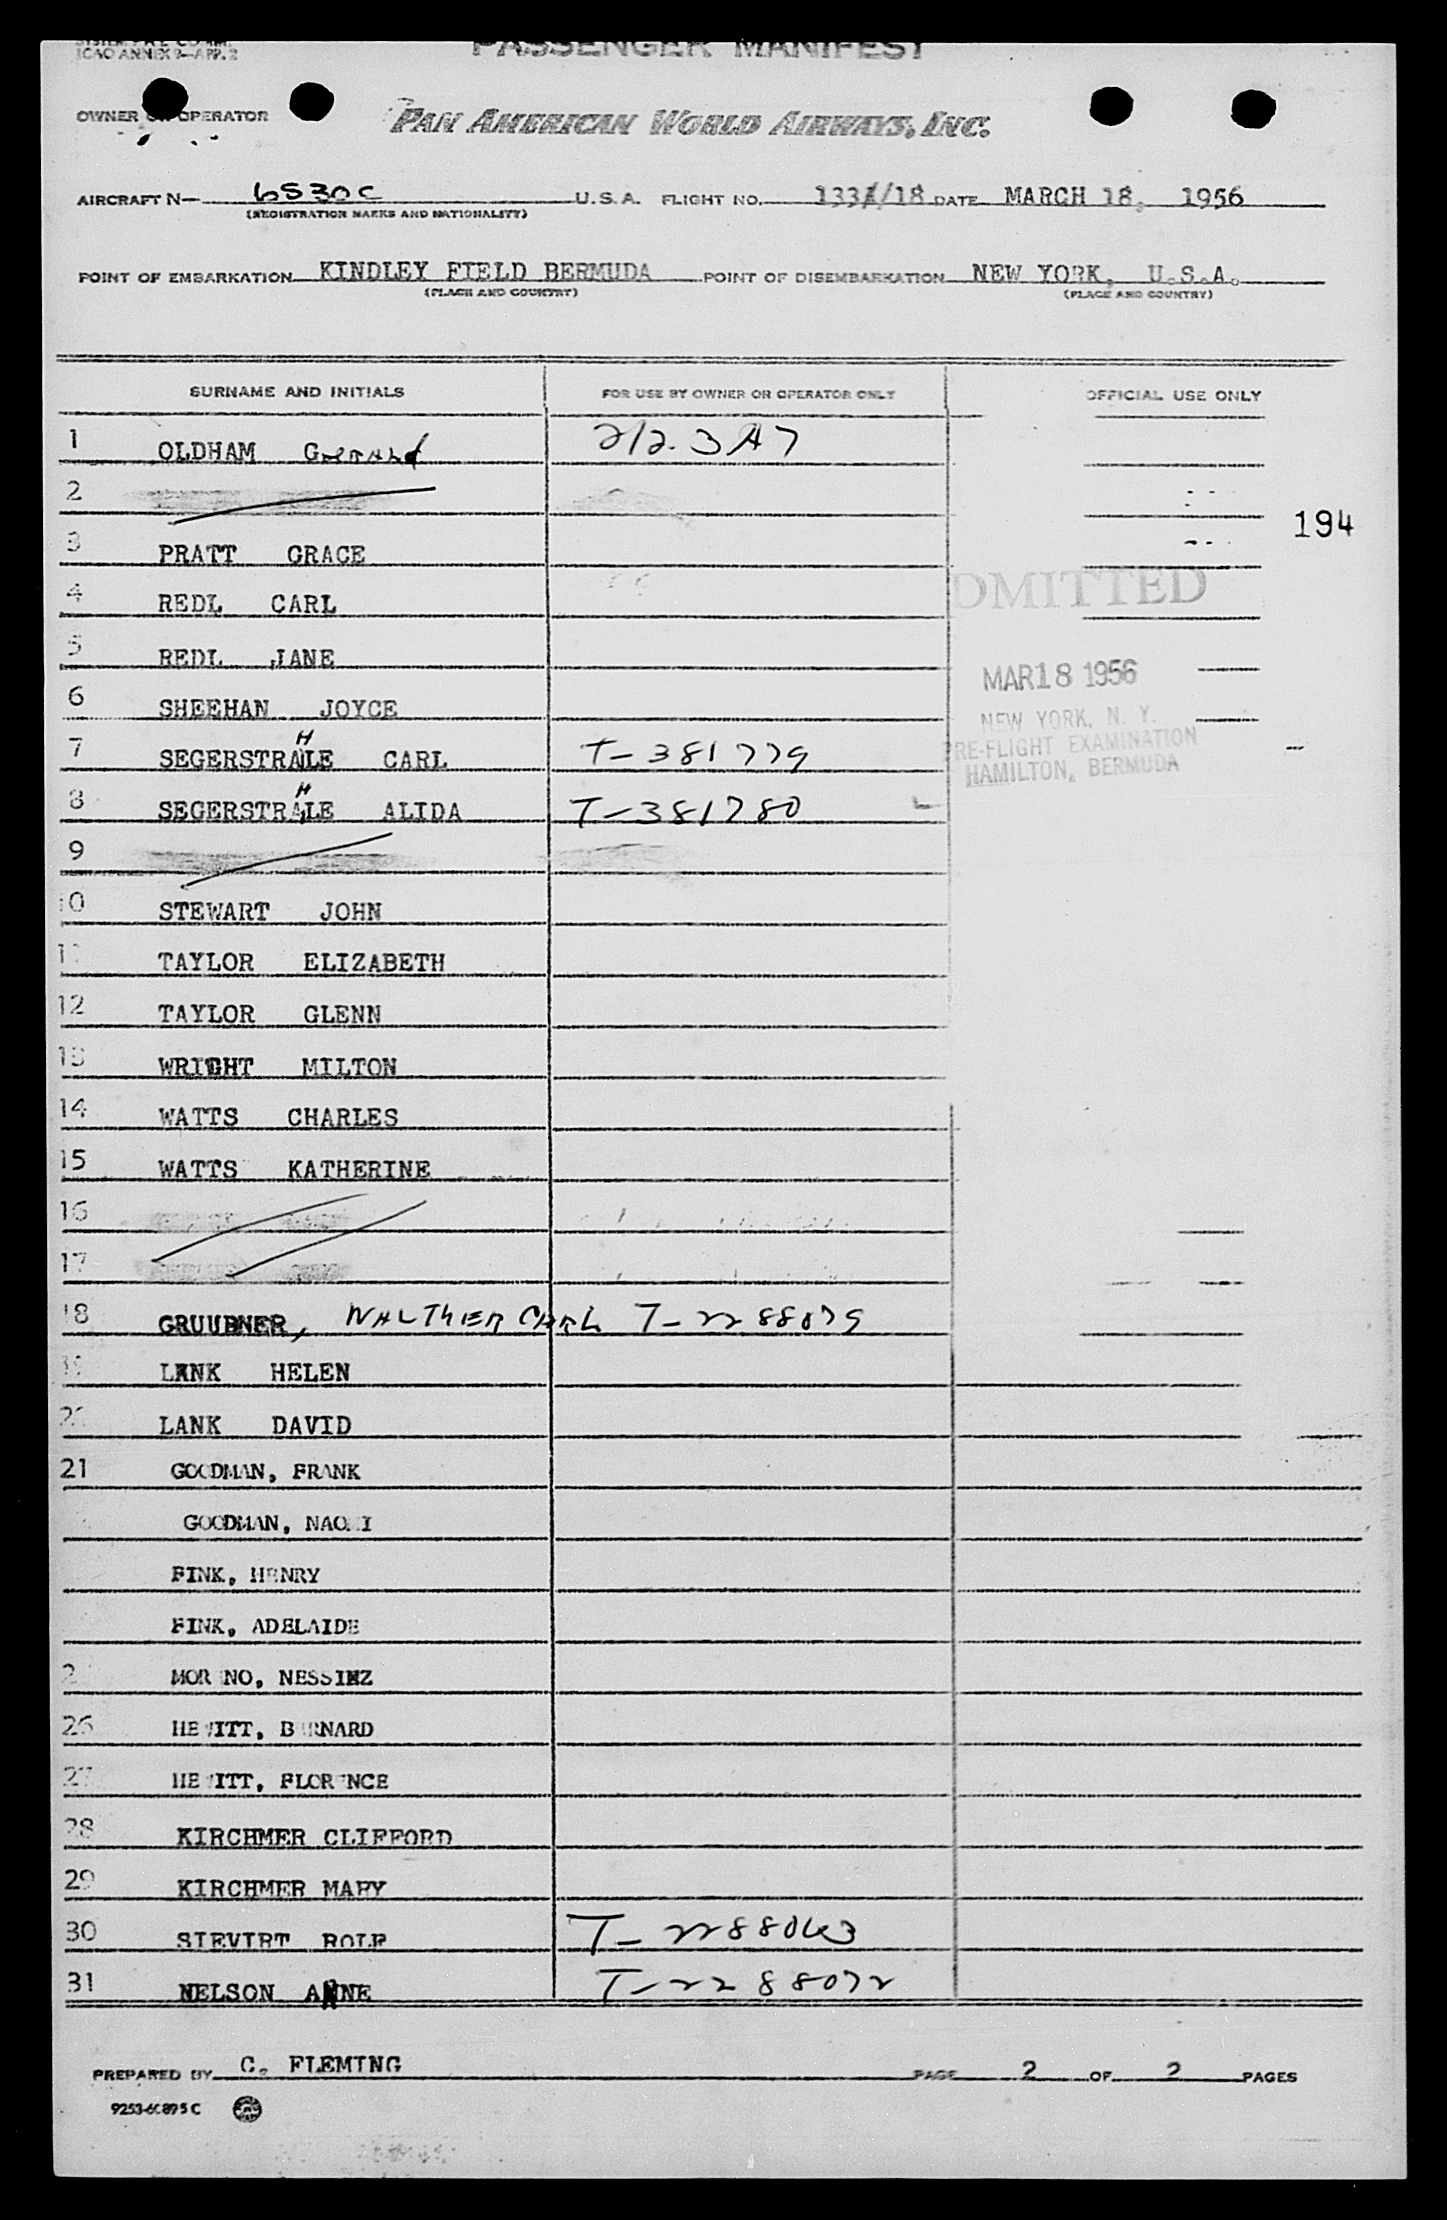 PASSENGER MANIFEST
ICAO ANNEX 9—APP. 2
OWNER OR OPERATOR PAN AMERICAN WORLD AIRWAYS, INC.
AIRCRAFT N— 6530C U.S.A. FLIGHT NO. 133A/18 DATE MARCH 18, 1956
(REGISTRATION MARKS AND NATIONALITY)
POINT OF EMBARKATION KINDLEY FIELD BERMUDA POINT OF DISEMBARKATION NEW YORK, U.S.A.
(PLACE AND COUNTRY) (PLACE AND COUNTRY)
SURNAME AND INITIALS FOR USE BY OWNER OR OPERATOR ONLY OFFICIAL USE ONLY
1 OLDHAM Gerald 212.3A7
2
194
3 PRATT GRACE
4 REDL CARL
DMITTED
5 REDL JANE
MAR 18 1956
6 SHEEHAN JOYCE
NEW YORK, N. Y.
7 SEGERSTRAHLE CARL T-381779
PRE-FLIGHT EXAMINATION
HAMILTON, BERMUDA
8 SEGERSTRAHLE ALIDA T-381780
9
10 STEWART JOHN
11 TAYLOR ELIZABETH
12 TAYLOR GLENN
13 WRIGHT MILTON
14 WATTS CHARLES
15 WATTS KATHERINE
16
17
18 GRUUBNER, WALTHER CARL T-2288079
19 LANK HELEN
20 LANK DAVID
21 GOODMAN, FRANK
GOODMAN, NAOMI
FINK, HENRY
FINK, ADELAIDE
2 MORENO, NESSIM
26 HEWITT, BERNARD
27 HEWITT, FLORENCE
28 KIRCHMER CLIFFORD
29 KIRCHMER MARY
30 SIEVERT ROLF T-2288063
31 NELSON ANNE T-2288072
PREPARED BY C. FLEMING PAGE 2 OF 2 PAGES
9253-60895C